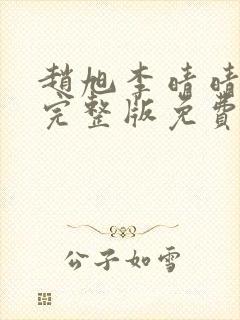 趙旭李晴晴
完整版免費
公子如雪